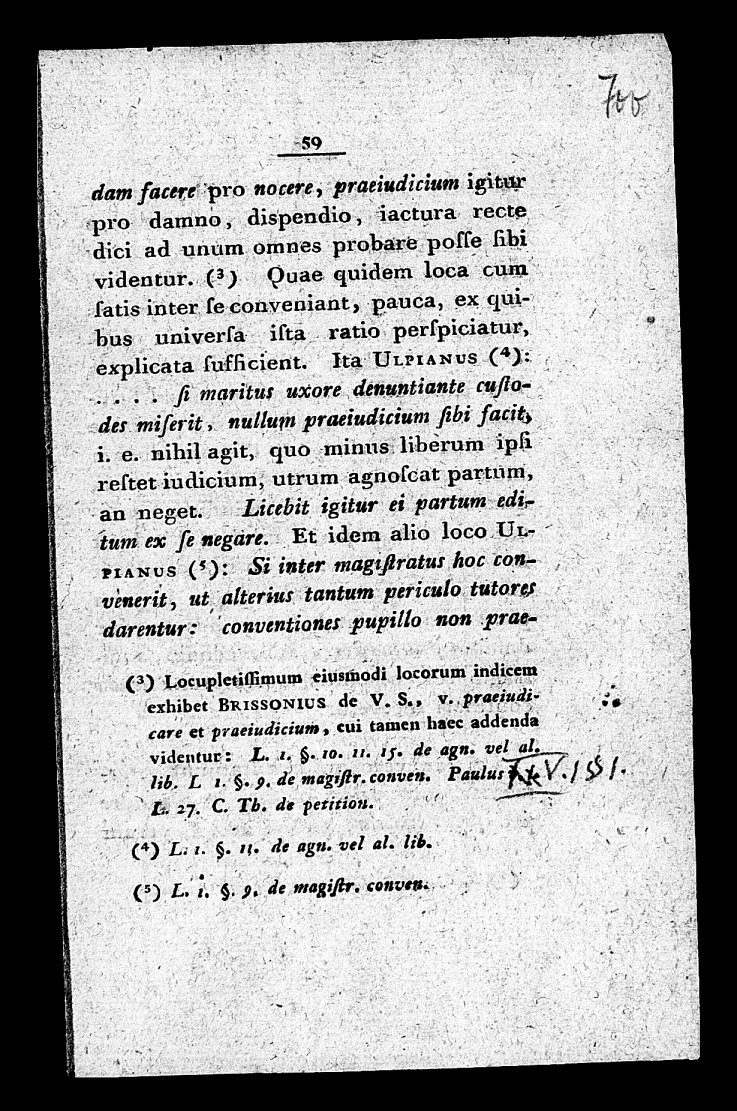 700
59
dam facere pro nocere, praeiudicium igitur
pro damno, dispendio, iactura recte
dici ad unum omnes probare poſſe ſibi
videntur. (³) Quae quidem loca cum
ſatis inter ſe conveniant, pauca, ex qui-
bus univerſa iſta ratio perſpiciatur,
explicata ſufficient. Ita ULPIANUS (⁴):
. . . . ſi maritus uxore denuntiante cuſto-
des miſerit, nullum praeiudicium ſibi facit,
i. e. nihil agit, quo minus liberum ipſi
reſtet iudicium, utrum agnoſcat partum,
an neget. Licebit igitur ei partum edi-
tum ex ſe negare. Et idem alio loco UL-
PIANUS (⁵): Si inter magiſtratus hoc con-
venerit, ut alterius tantum periculo tutores
darentur: conventiones pupillo non prae-
(³) Locupletiſſimum eiusmodi locorum indicem
exhibet BRISSONIUS de V. S., v. praeiudi-
care et praeiudicium, cui tamen haec addenda
videntur: L. 1. §. 10. 11. 15. de agn. vel al.
lib. L 1. §. 9. de magiſtr. conven. Paulus V. 1 § 1.
L. 27. C. Th. de petition.
(⁴) L. 1. §. 11. de agn. vel al. lib.
(⁵) L. 1. §. 9. de magiſtr. conven.